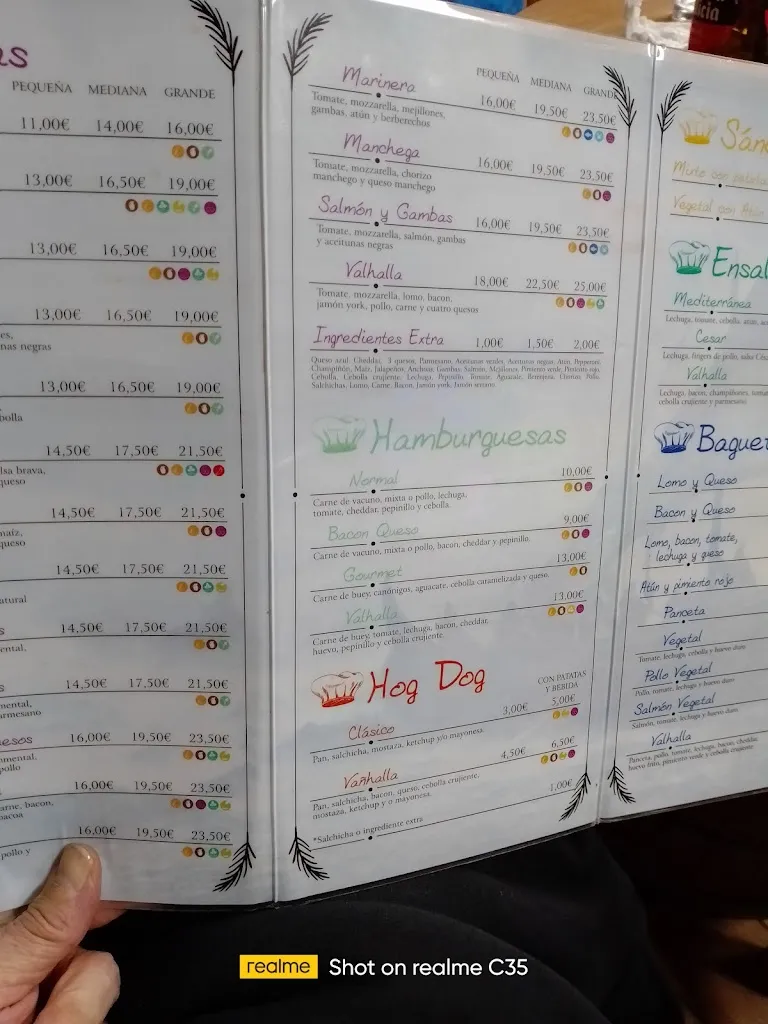 as
PEQUEÑA MEDIANA GRANDE
11,00€ 14,00€ 16,00€
13,00€ 16,50€ 19,00€
13,00€ 16,50€ 19,00€
13,00€ 16,50€ 19,00€
es,
nas negras
13,00€ 16,50€ 19,00€
bolla
14,50€ 17,50€ 21,50€
lsa brava,
queso
14,50€ 17,50€ 21,50€
maíz,
queso
14,50€ 17,50€ 21,50€
atural
14,50€ 17,50€ 21,50€
mental,
14,50€ 17,50€ 21,50€
mental,
armesano
esos 16,00€ 19,50€ 23,50€
mental,
pollo
16,00€ 19,50€ 23,50€
arne, bacon,
bacoa
16,00€ 19,50€ 23,50€
pollo y
PEQUEÑA MEDIANA GRANDE
Marinera 16,00€ 19,50€ 23,50€
Tomate, mozzarella, mejillones,
gambas, atún y berberechos
Manchega 16,00€ 19,50€ 23,50€
Tomate, mozzarella, chorizo
manchego y queso manchego
Salmón y Gambas 16,00€ 19,50€ 23,50€
Tomate, mozzarella, salmón, gambas
y aceitunas negras
Valhalla 18,00€ 22,50€ 25,00€
Tomate, mozzarella, lomo, bacon,
jamón york, pollo, carne y cuatro quesos
Ingredientes Extra 1,00€ 1,50€ 2,00€
Queso azul, Cheddar, 3 quesos, Parmesano, Aceitunas verdes, Aceitunas negras, Atún, Pepperoni,
Champiñón, Maíz, Jalapeños, Anchoas, Gambas, Salmón, Mejillones, Pimiento verde, Pimiento rojo,
Cebolla, Cebolla crujiente, Lechuga, Pepinillo, Tomate, Aguacate, Berenjena, Pollo,
Salchichas, Lomo, Carne, Bacon, Jamón york, Jamón serrano
Hamburguesas
Normal 10,00€
Carne de vacuno, mixta o pollo, lechuga,
tomate, cheddar, pepinillo y cebolla.
Bacon Queso 9,00€
Carne de vacuno, mixta o pollo, bacon, cheddar y pepinillo.
Gourmet 13,00€
Carne de buey, canónigos, aguacate, cebolla caramelizada y queso.
Valhalla 13,00€
Carne de buey, tomate, lechuga, bacon, cheddar,
huevo, pepinillo y cebolla crujiente.
Hog Dog
CON PATATAS
Y BEBIDA
Clásico 3,00€ 5,00€
Pan, salchicha, mostaza, ketchup y/o mayonesa.
Vanhalla 4,50€ 6,50€
Pan, salchicha, bacon, queso, cebolla crujiente,
mostaza, ketchup y o mayonesa.
*Salchicha o ingrediente extra 1,00€
Sánd
Mixto con patata
Vegetal con Atún
Ensal
Mediterránea
Lechuga, tomate, cebolla, atún, ac
Cesar
Lechuga, fingers de pollo, salsa Césa
Valhalla
Lechuga, bacon, champiñones, tomat
cebolla crujiente y parmesano.
Baguet
Lomo y Queso
Bacon y Queso
Lomo, bacon, tomate,
lechuga y queso
Atún y pimiento rojo
Panceta
Vegetal
Tomate, lechuga, cebolla y huevo duro
Pollo Vegetal
Pollo, tomate, lechuga y huevo duro
Salmón Vegetal
Salmón, tomate, lechuga y huevo duro.
Valhalla
Panceta, pollo, tomate, lechuga, bacon, cheddar,
huevo frito, pimiento verde y cebolla crujiente
realme Shot on realme C35